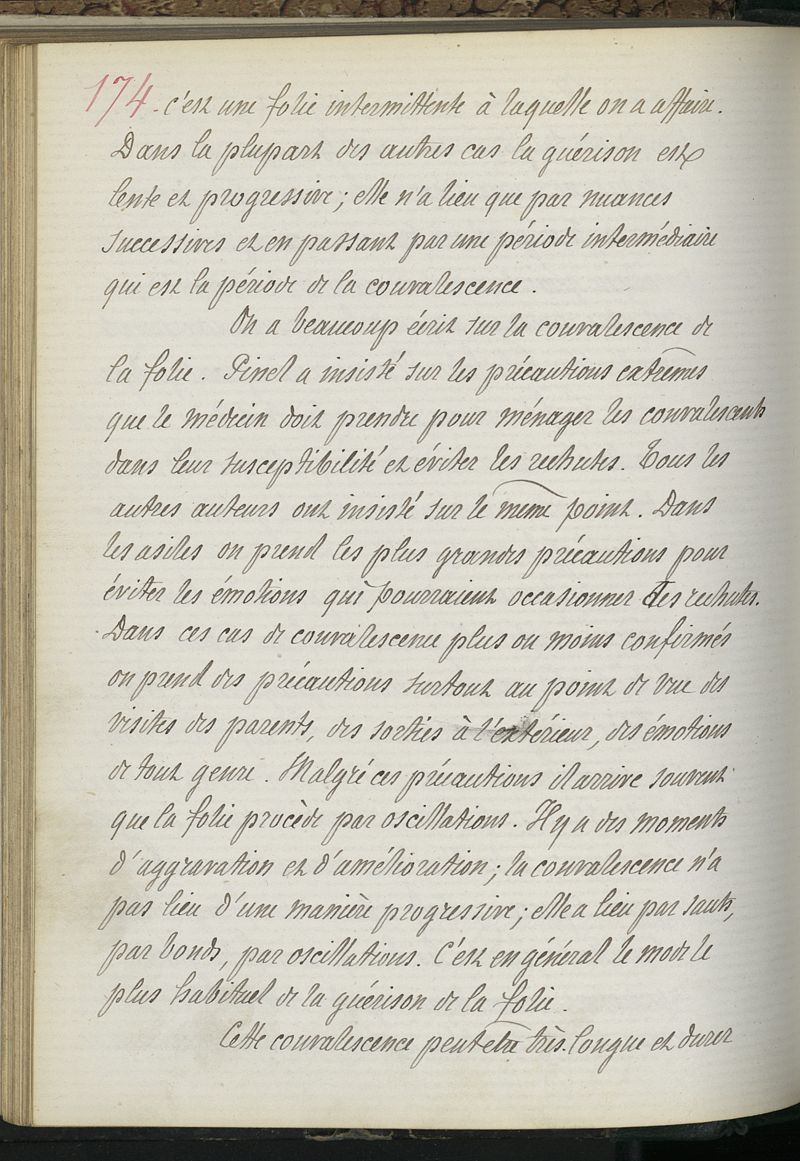 174. c'est une folie intermittente à laquelle on a affaire.
Dans la plupart des autres cas la guérison est
lente et progressive ; elle n'a lieu que par nuances
successives et en passant par une période intermédiaire
qui est la période de la convalescence .
On a beaucoup écrit sur la convalescence de
la folie . Pinel a insisté sur les précautions extrêmes
que le médecin doit prendre pour ménager les convalescents
dans leur susceptibilité et éviter les rechutes. Tous les
autres auteurs ont insisté sur le même point. Dans
les asiles on prend les plus grandes précautions pour
éviter les émotions qui pourraient occasionner des rechutes.
Dans ces cas de convalescence plus ou moins confirmés
on prend des précautions surtout au point de vue des
visites des parents, des sorties à l'extérieur, des émotions
de tout genre . Malgré ces précautions il arrive souvent
que la folie procède par oscillations. Il y a des moments
d'aggravation et d'amélioration ; la convalescence n'a
pas lieu d'une manière progressive ; elle a lieu par sauts,
par bonds, par oscillations. C'est en général le mode le
plus habituel de la guérison de la folie .
Cette convalescence peut être très longue et durer